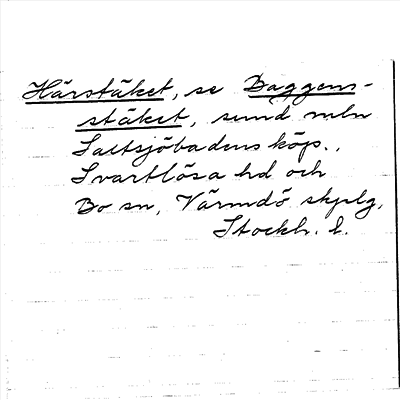 Härstäket, se Baggens-
stäket, sund mln
Saltsjöbadens köp.,
Svartlösa hd och
Bo sn, Värmdö skplg,
Stockh. l.